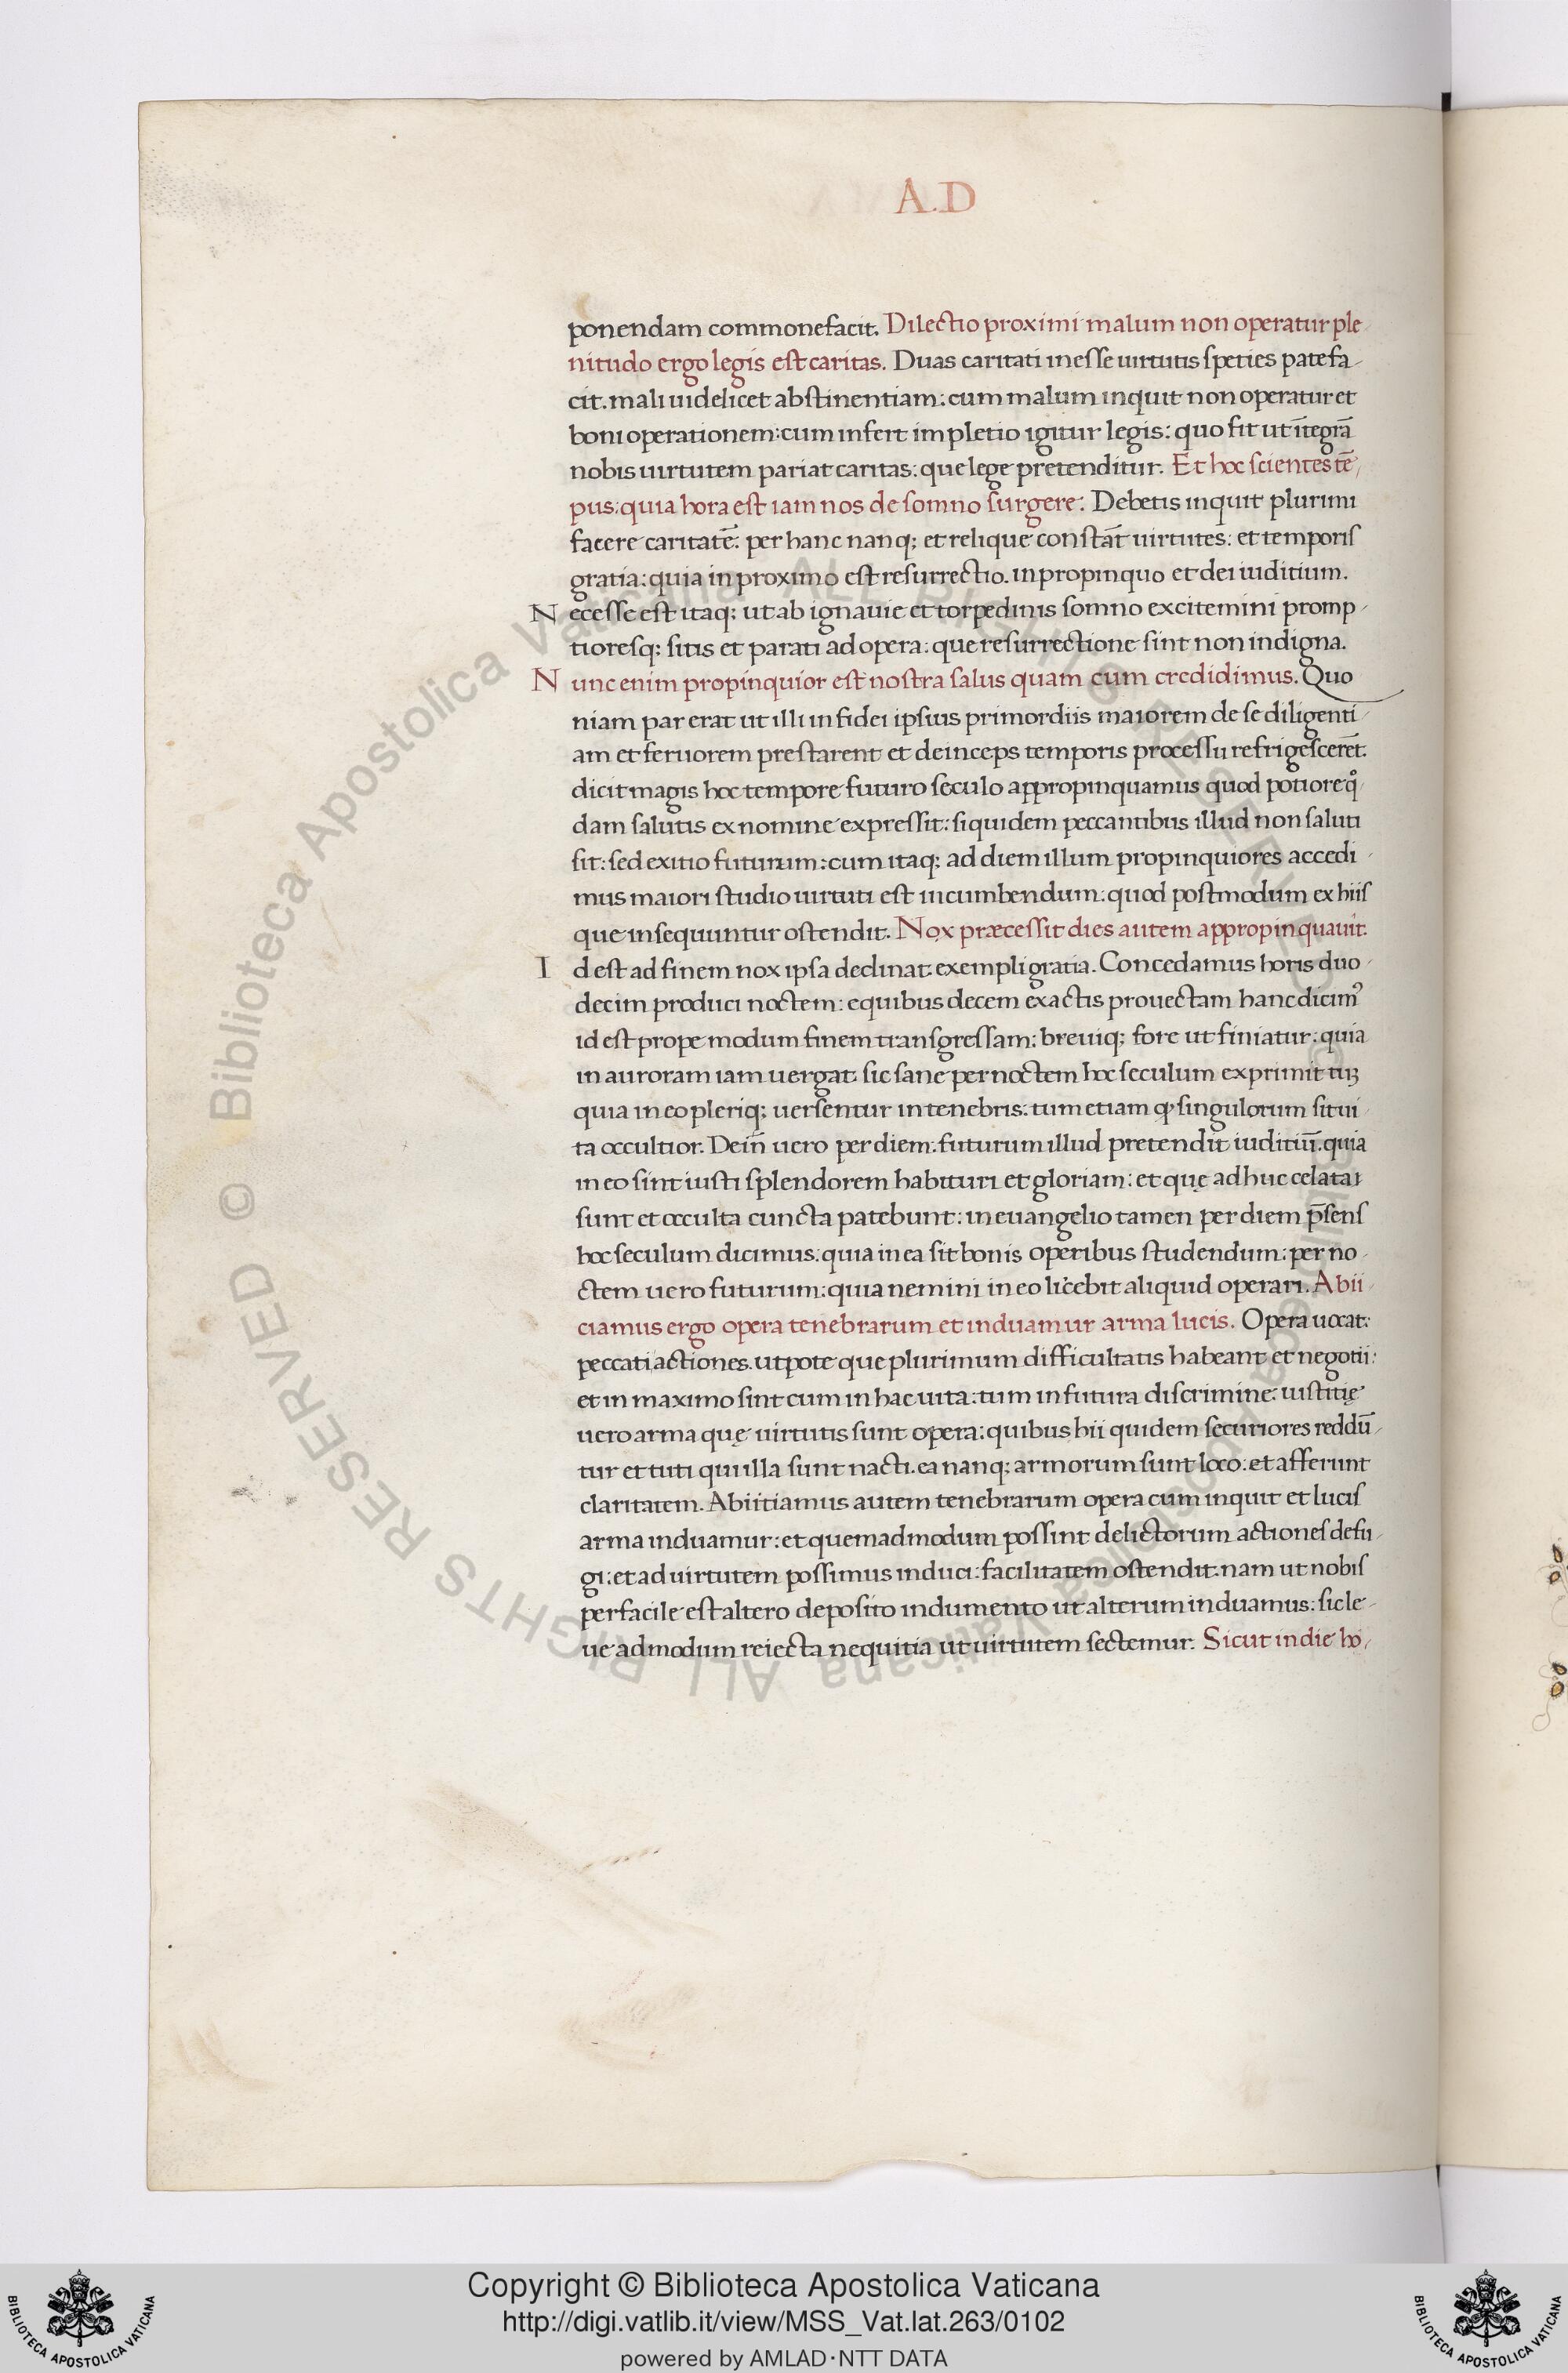 A.D
ponendam commonefacit. Dilectio proximi malum non operatur ple
nitudo ergo legis est caritas. Duas caritati inesse uirtutis speties patefa
cit. mali uidelicet abstinentiam: cum malum inquit non operatur et
boni operationem: cum infert impletio igitur legis: quo fit ut ītegrā
nobis uirtutem pariat caritas: que lege pretenditur. Et hoc scientes tē
pus: quia hora est iam nos de somno surgere. Debetis inquit plurimi
facere caritatē. per hanc nanq; et relique constāt uirtutes: et temporis
gratia: quia in proximo est resurrectio. in propinquo et dei iuditium.
Necesse est itaq; ut ab ignauie et torpedinis somno excitemini promp
tioresq; sitis et parati ad opera: que resurrectione sint non indigna.
Nunc enim propinquior est nostra salus quam cum credidimus. Quo
niam par erat ut illi in fidei ipsius primordiis maiorem de se diligenti
am et feruorem prestarent et deinceps temporis processu refrigescerēt.
dicit magis hoc tempore futuro seculo appropinquamus quod potiore q̊
dam salutis ex nomine expressit: siquidem peccantibus illud non saluti
sit: sed exitio futurum: cum itaq; ad diem illum propinquiores accedi
mus maiori studio uirtuti est incumbendum: quod postmodum ex hiis
que insequuntur ostendit. Nox præcessit dies autem appropinquauit.
Id est ad finem nox ipsa declinat exempli gratia. Concedamus horis duo
decim produci noctem: e quibus decem exactis prouectam hanc dicimꝰ
id est prope modum finem transgressam: breuiq; fore ut finiatur: quia
in auroram iam uergat. sic sane per noctem hoc seculum exprimit tuꝫ
quia in eo pleriq; uersentur in tenebris: tum etiam ꝙ singulorum sit ui
ta occultior. Dein̄ uero per diem. futurum illud pretendit iuditiū. quia
in eo sint iusti splendorem habituri et gloriam: et quę adhuc celatai
sunt et occulta cuncta patebunt: in euangelio tamen per diem p̄sens
hoc seculum dicimus: quia in ea sit bonis operibus studendum: per no
ctem uero futurum: quia nemini in eo licebit aliquid operari. Abii
ciamus ergo opera tenebrarum et induamur arma lucis. Opera uocat:
peccati actiones. utpote que plurimum difficultatis habeant et negotii:
et in maximo sint cum in hac uita: tum in futura discrimine: iustitię
uero arma quę uirtutis sunt opera: quibus hii quidem securiores reddū
tur et tuti qui illa sunt nacti. ea nanq; armorum sunt loco: et afferunt
claritatem. Abiitiamus autem tenebrarum opera cum inquit et lucis
arma induamur: et quemadmodum possint delictorum actiones defu
gi: et ad uirtutem possimus induci: facilitatem ostendit. nam ut nobis
perfacile est altero deposito indumento ut alterum induamus: sic le
ue admodum reiecta nequitia ut uirtutem sectemur. Sicut in die ho
© Biblioteca Apostolica Vaticana ALL RIGHTS RESERVED
© Biblioteca Apostolica Vaticana ALL RIGHTS RESERVED
Copyright © Biblioteca Apostolica Vaticana
http://digi.vatlib.it/view/MSS_Vat.lat.263/0102
powered by AMLAD·NTT DATA
BIBLIOTECA APOSTOLICA VATICANA
BIBLIOTECA APOSTOLICA VATICANA